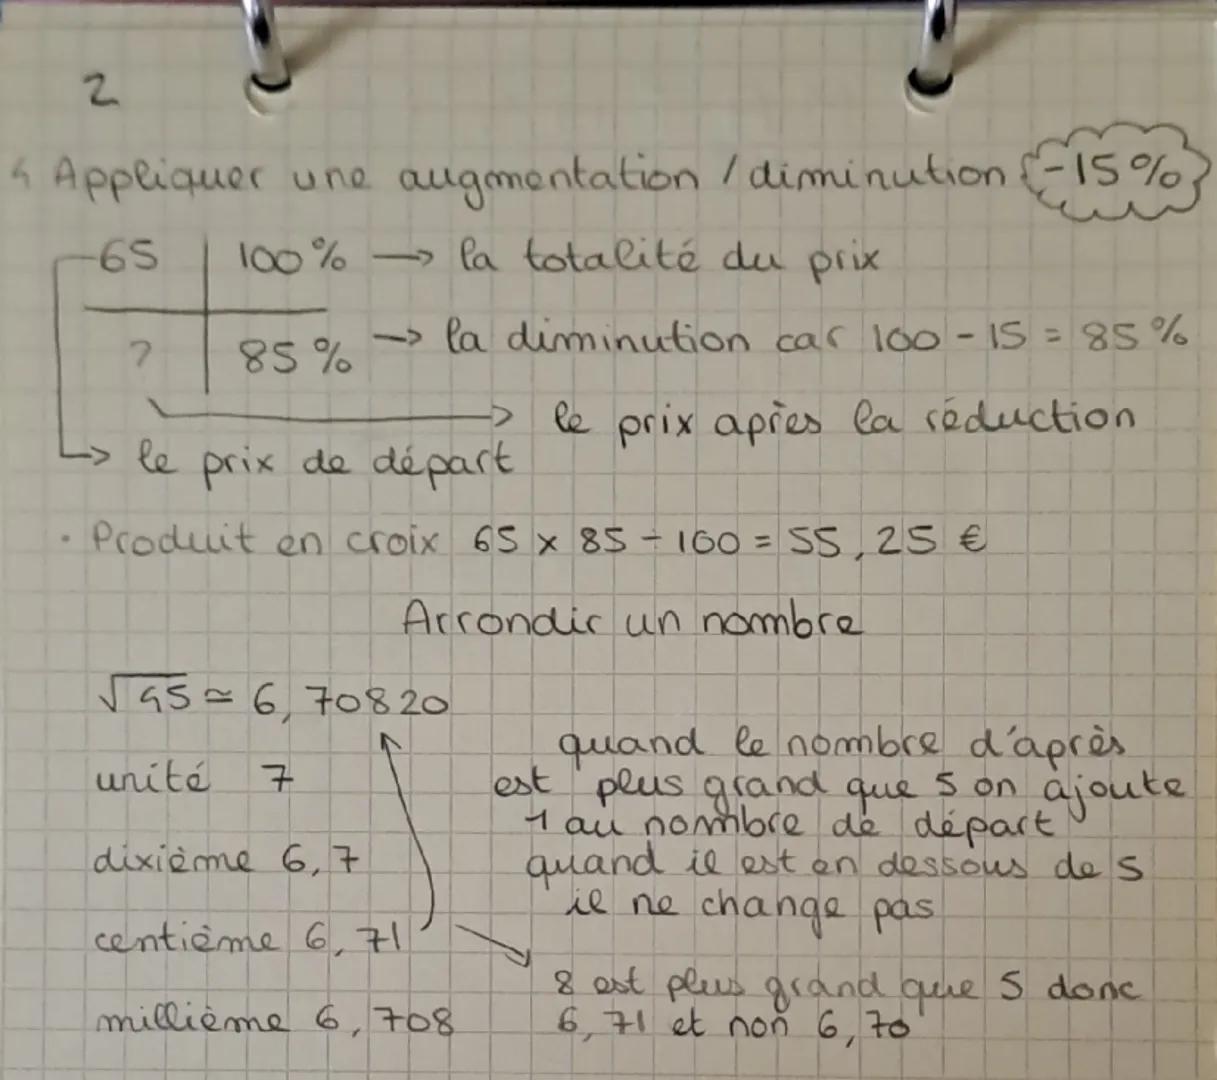 2
4 Appliquer une augmentation / diminution -15%
65 100% → la totalité du prix
? 85% → la diminution car 100 - 15 = 85%
→ le prix après la réduction
→ le prix de départ
• Produit en croix 65 x 85 ÷ 100 = 55,25 €
Arrondir un nombre
√45 ≃ 6,70820
quand le nombre d'après
unité 7
est plus grand que 5 on ajoute
1 au nombre de départ
dixième 6,7
quand il est en dessous de 5
il ne change pas
centième 6,71
8 est plus grand que 5 donc
millième 6,708
6,71 et non 6,70